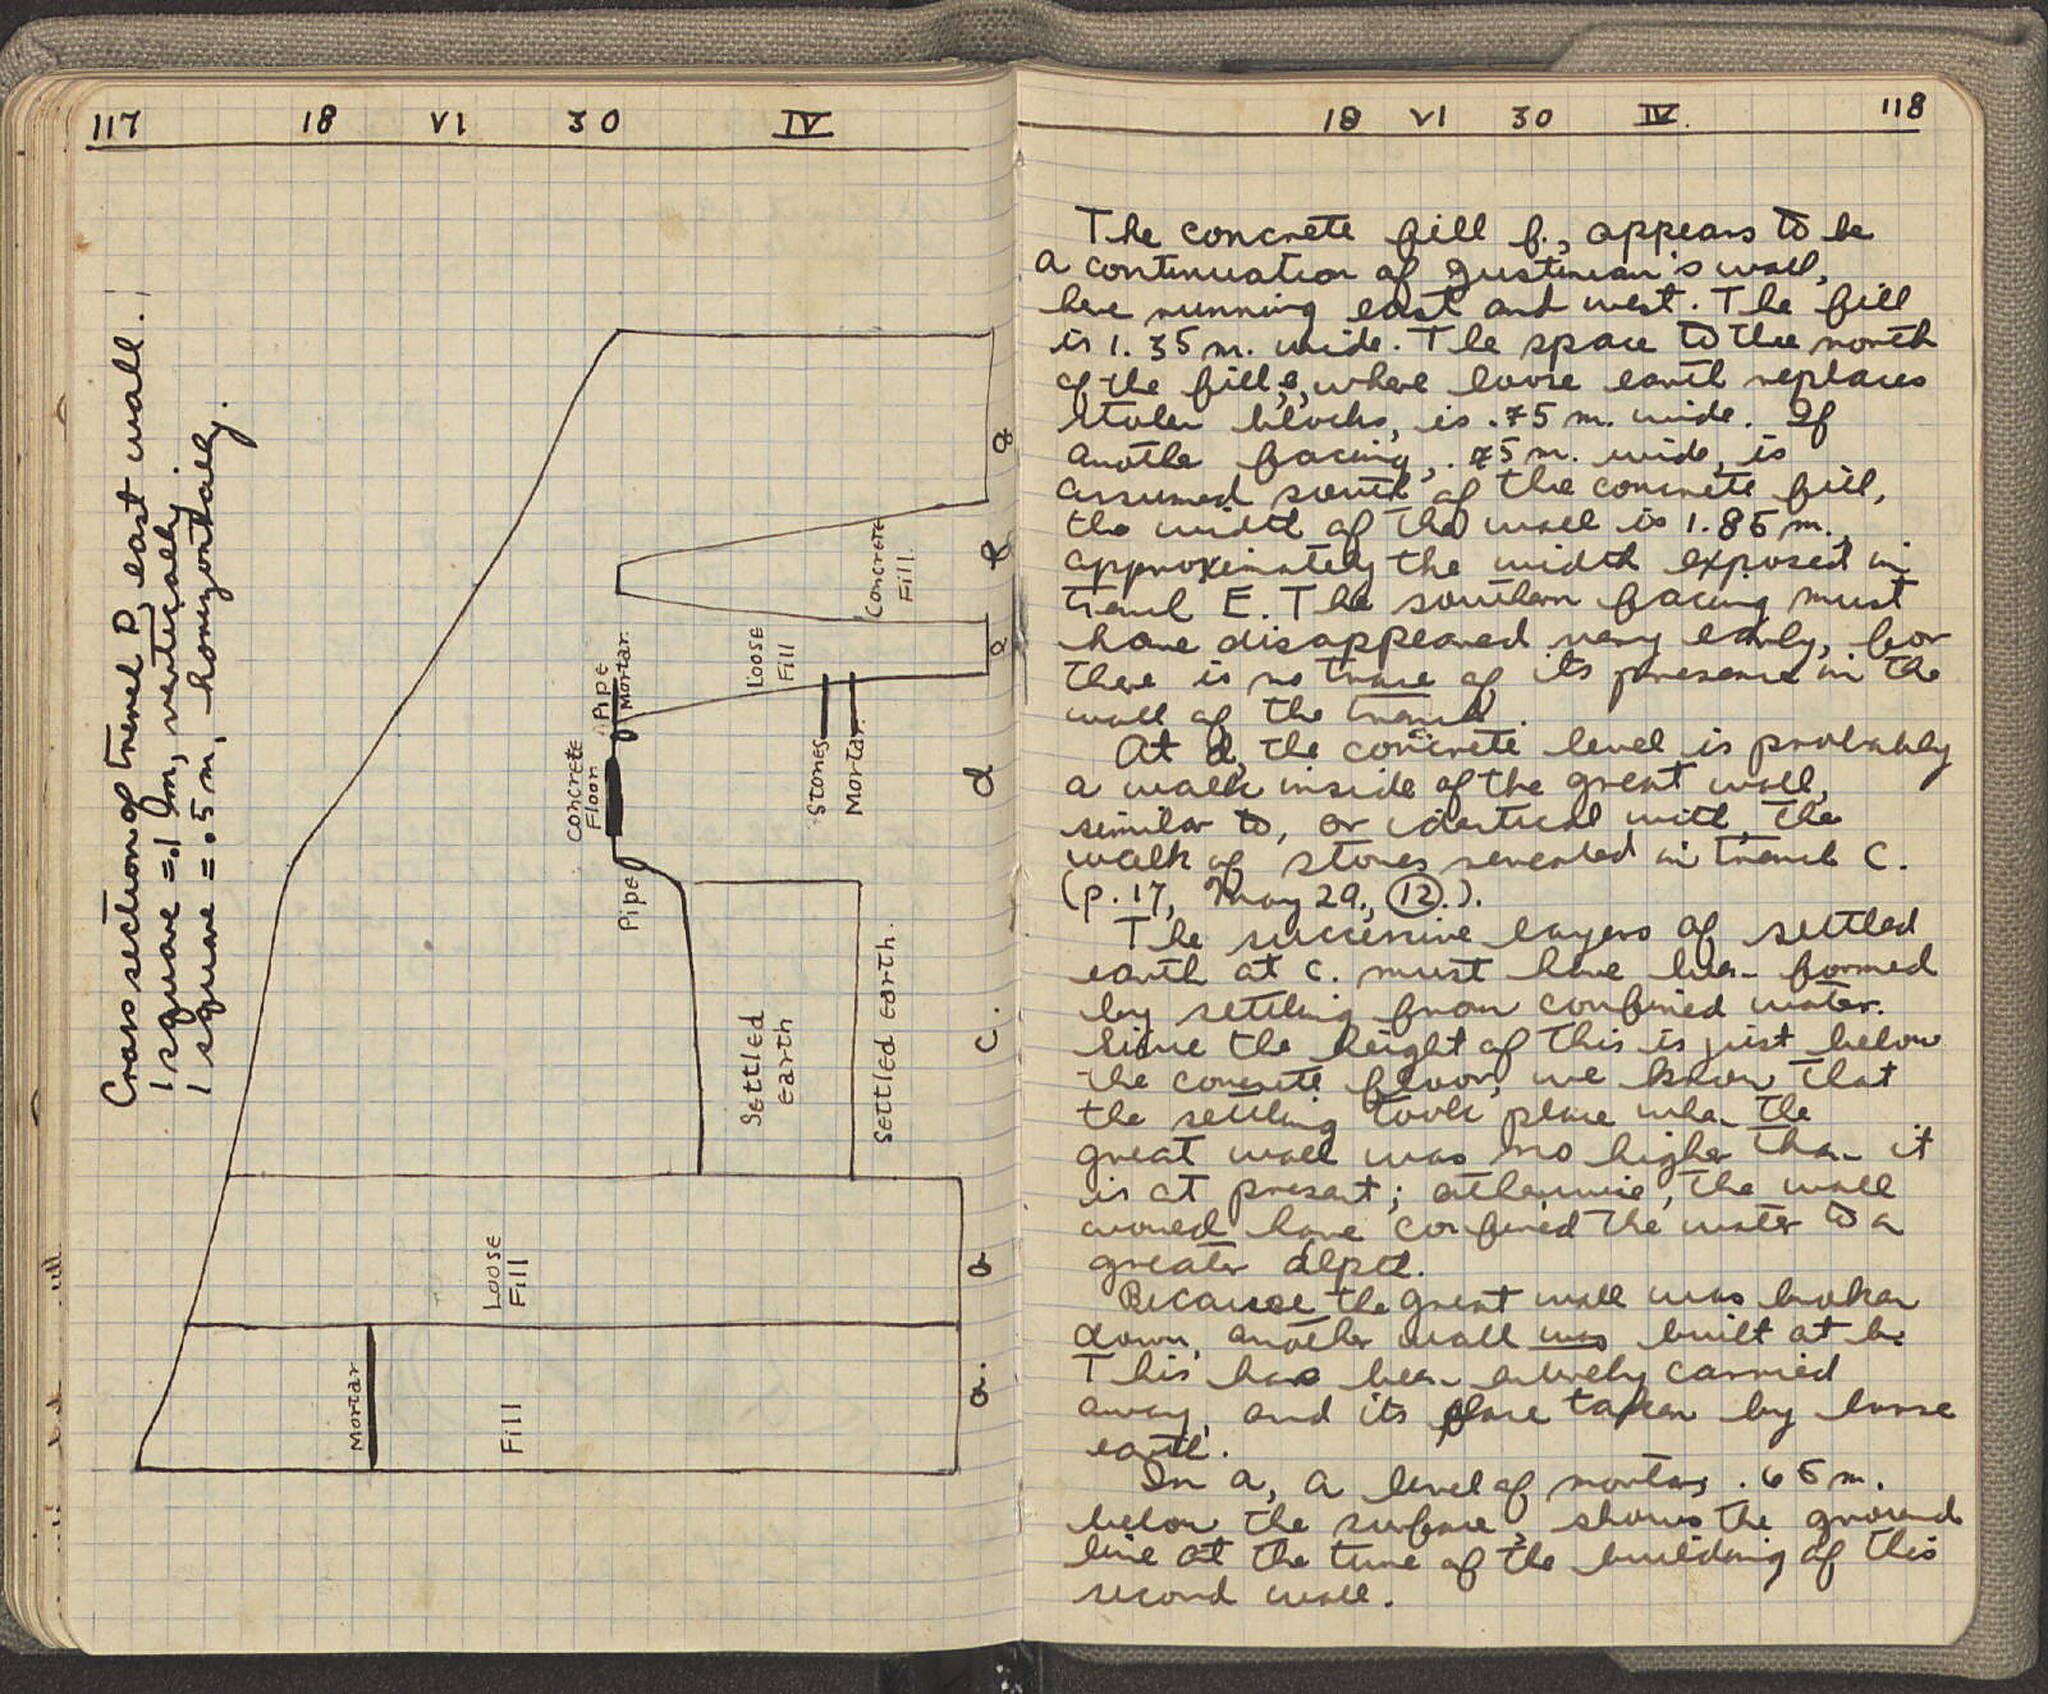 117 18 VI 30 IV
Cross section of trench P, east wall.
1 square = .1 m, vertically
1 square = .5 m, horizontally.
g
f
Concrete
Fill.
e
Loose
Fill
Pipe
Mortar.
Concrete
Floor
d
Stones
Mortar.
Pipe
Settled
earth
Settled earth.
c.
Loose
Fill
b
Mortar
Fill
a.
18 VI 30 IV. 118
The concrete fill f., appears to be
a continuation of Justinian's wall,
here running east and west. The fill
is 1.35 m. wide. The space to the north
of the fill, e, where loose earth replaces
stolen blocks, is .75 m. wide. If
another facing, .75 m. wide, is
assumed south of the concrete fill,
the width of the wall is 1.85 m.,
approximately the width exposed in
trench E. The southern facing must
have disappeared very early, for
there is no trace of its presence in the
wall of the trench.
At d, the concrete level is probably
a walk inside of the great wall,
similar to, or identical with, the
walk of stones revealed in trench C.
(p. 17, May 29., 12.).
The successive layers of settled
earth at c. must have been formed
by settling from confined water.
Since the height of this is just below
the concrete floor, we know that
the settling took place when the
great wall was no higher than it
is at present; otherwise, the wall
would have confined the water to a
greater depth.
Because the great wall was broken
down, another wall was built at b.
This has been entirely carried
away, and its place taken by loose
earth.
In a, a level of mortar, .65 m.
below the surface, shows the ground
line at the time of the building of this
second wall.